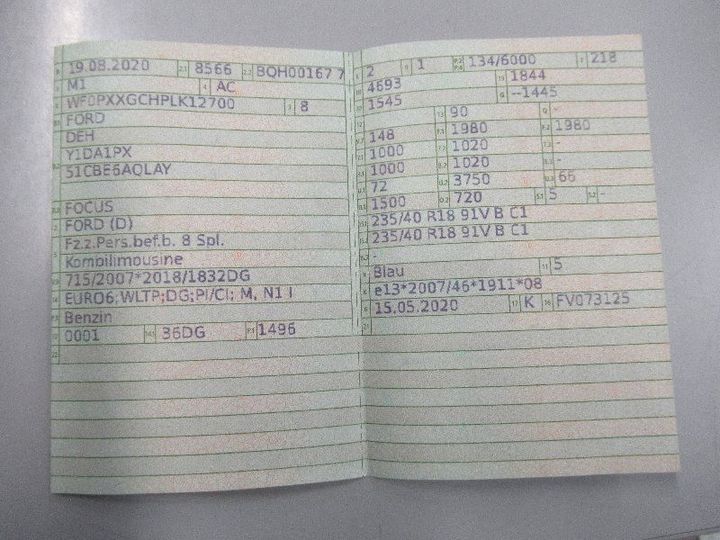 19.08.2020 8566 BQH00167 7
M1 AC
WF0PXXGCHPLK12700 8
FORD
DEH
Y1DA1PX
51CBE6AQLAY
FOCUS
FORD (D)
Fz.z.Pers.bef.b. 8 Spl.
Kombilimousine
715/2007*2018/1832DG
EURO6;WLTP;DG;PI/CI; M, N1 I
Benzin
0001 36DG 1496
2 1 134/6000 218
4693 1844
1545 --1445
90 -
148 1980 1980
1000 1020 -
1000 1020 -
72 3750 66
1500 720 5 -
235/40 R18 91V B C1
235/40 R18 91V B C1
-
Blau 5
e13*2007/46*1911*08
15.05.2020 K FV073125